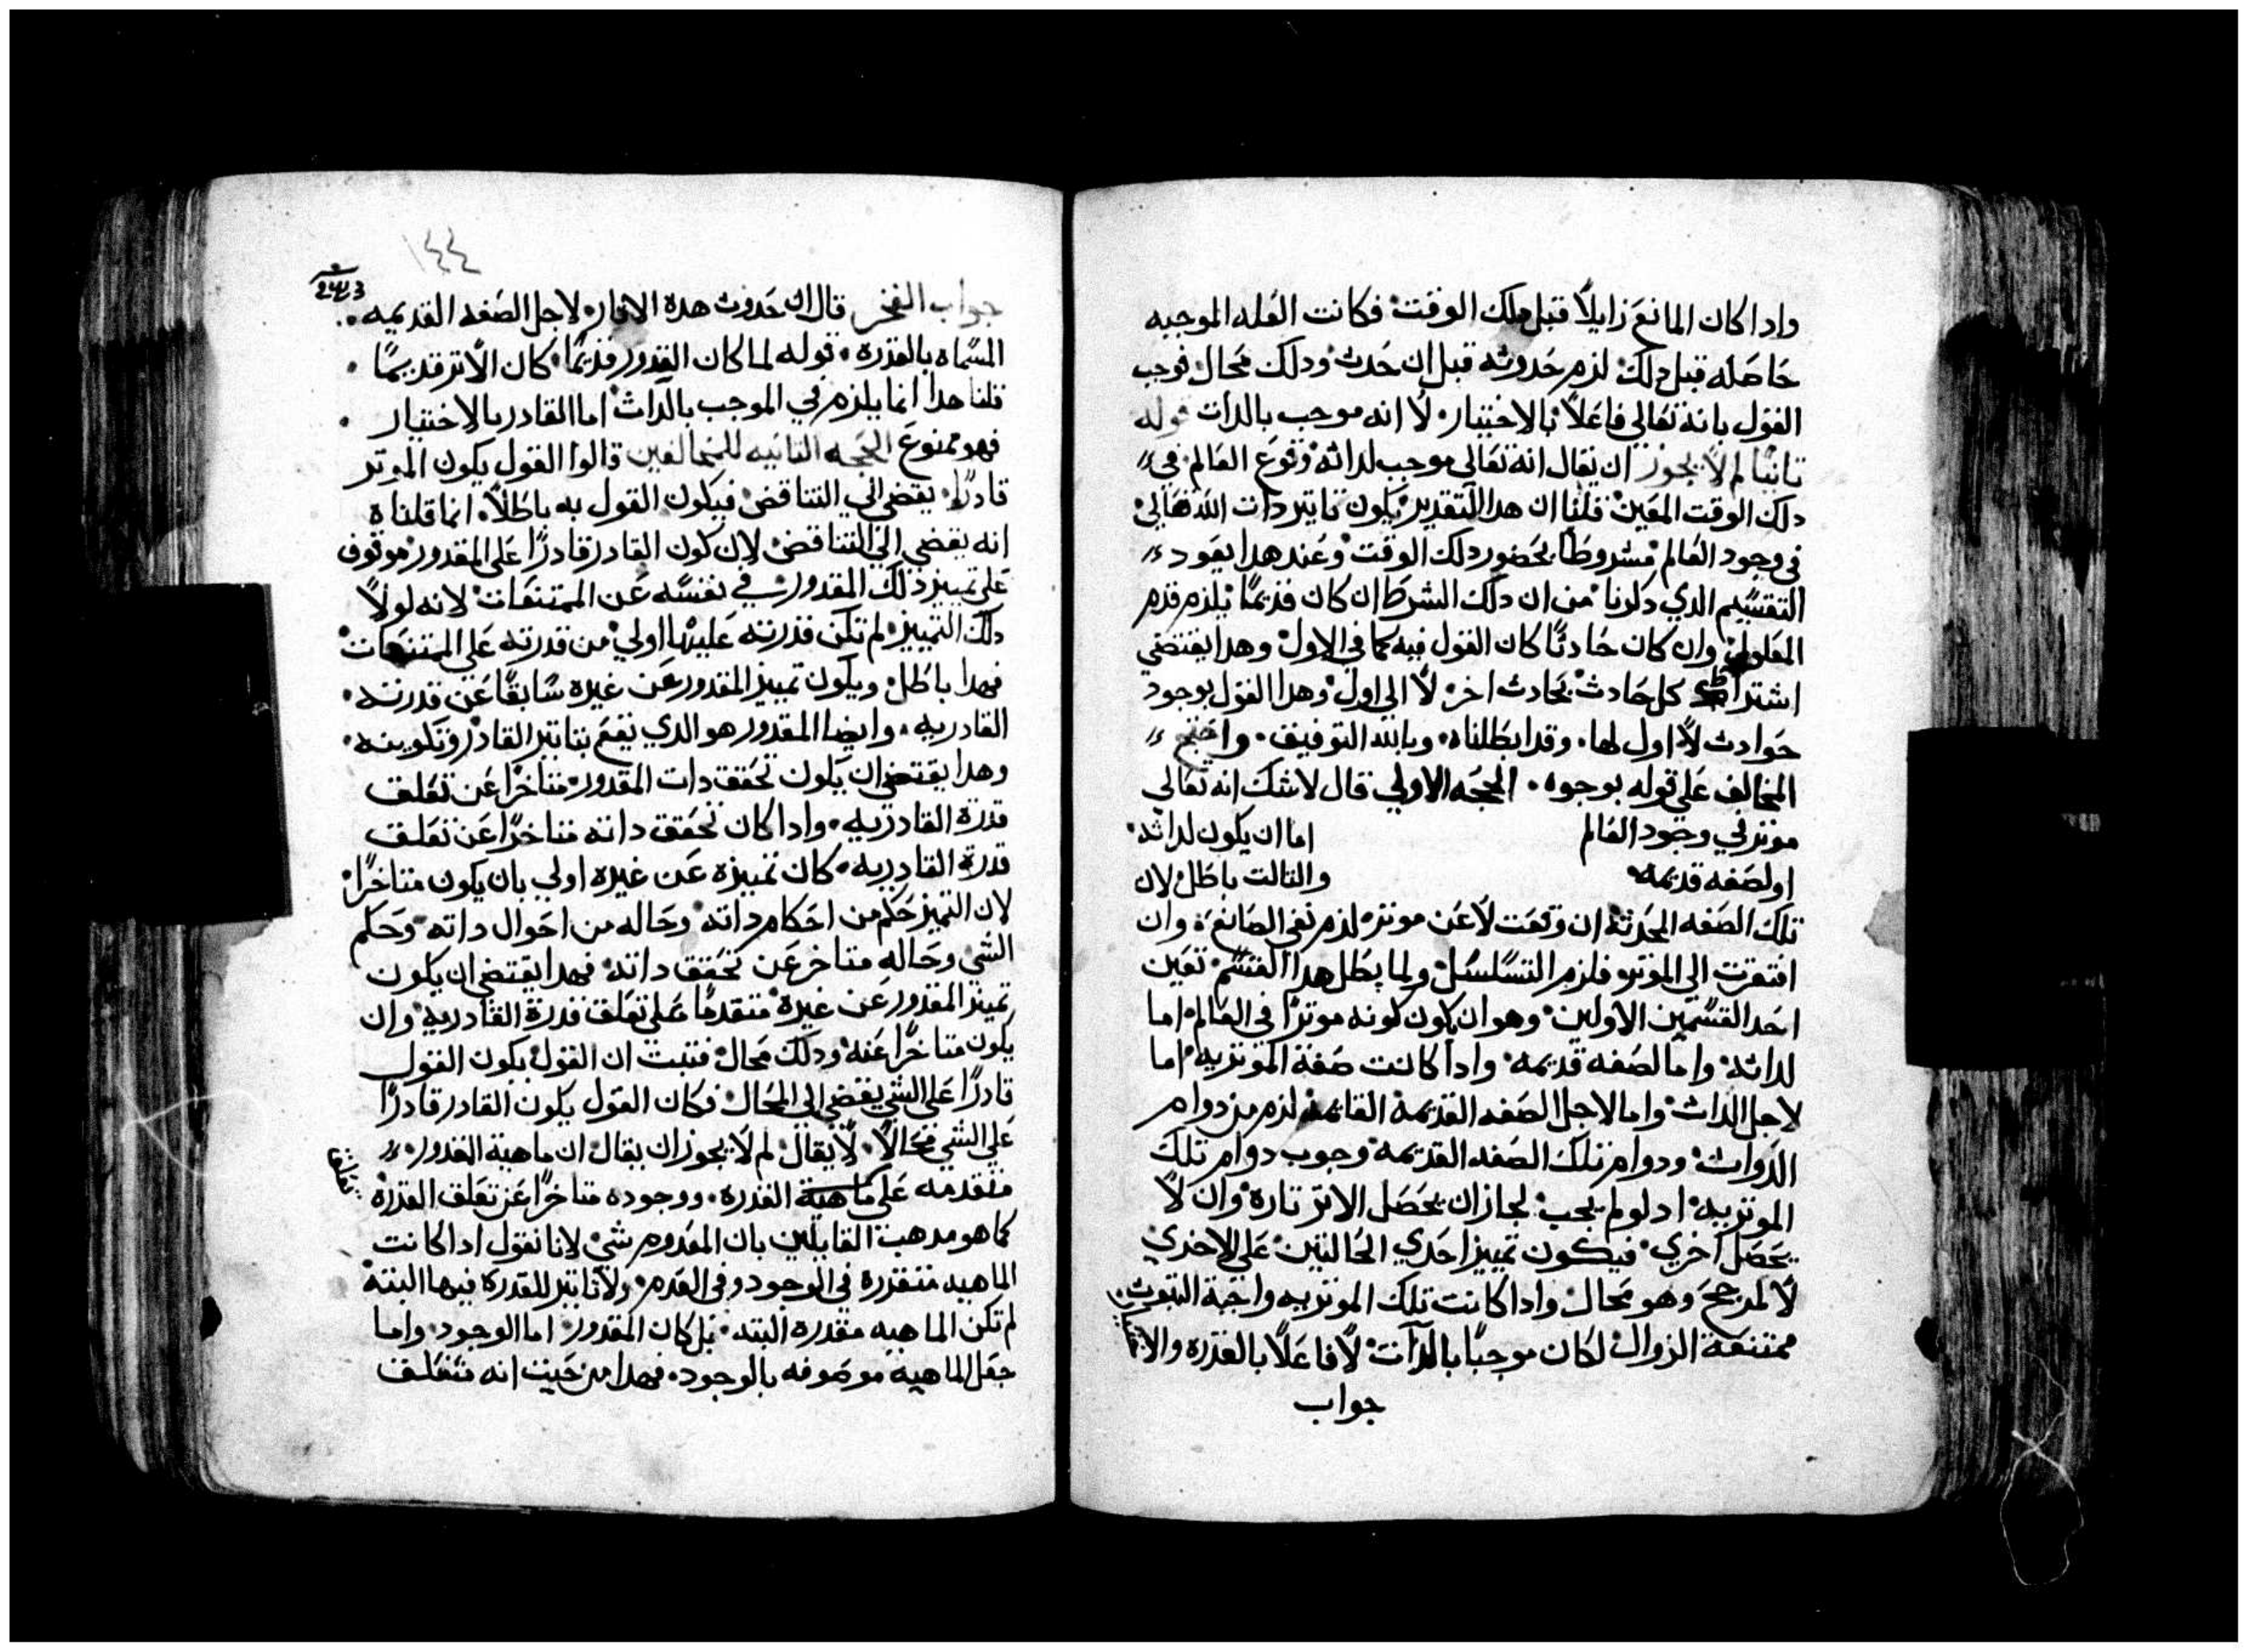 وادا كان المانع زايلًا قبل دلك الوقت فكانت العله الموجبه
حاصله قبل دلك لزم حدوثه قبل ان حدث ودلك محال فوجب
القول بانه تعالي فاعلًا بالاختيار لا انه موجب بالدات قوله
تانيًا لم لا يجوز ان يقال انه تعالى موجب لداته وقوع العالم في
دلك الوقت المعين قلنا ان هدا التقدير يكون تاتير دات الله تعالى
في وجود العالم مشروطًا بحضور دلك الوقت وعند هدا يعود
التقسيم الدي دكرنا من ان دلك الشرط ان كان قديمًا يلزم قدم
المعلول وان كان حادثًا كان القول فيه كما في الاول وهدا يقتضي
اشتراط كل حادث بحادث اخر لا الي اول وهدا القول بوجود
حوادث لا اول لها وقد ابطلناه وبالله التوفيق واحتج
المخالف على قوله بوجوه الحجه الاولي قال لا شك انه تعالى
موتر في وجود العالم اما ان يكون لداته
او لصفه قديمه والتالت باطل لان
تلك الصفه المحدثه ان وقعت لا عن موتر لزم نفي الصانع وان
افتقرت الي الموتر فلزم التسلسل ولما بطل هدا القسم تعين
احد القسمين الاولين وهو ان يكون كونه موترًا في العالم اما
لداته واما لصفه قديمه وادا كانت صفة الموتريه اما
لاجل الدات واما لاجل الصفه القديمة القايمة لزم من دوام
الدوات ودوام تلك الصفه القديمه وجوب دوام تلك
الموتريه اد لو لم يجب لجاز ان يحصل الاتر تارة وان لا
يحصل اخري فيكون تمييز احدي الحالتين على الاخري
لا لمرجح وهو محال وادا كانت تلك الموتريه واجبة التبوت
ممتنعة الزوال لكان موجبًا بالدات لا فاعلًا بالقدره والاختيار
جواب
١٤٤
243
جواب الفخر قال ان حدوت هده الاتار لاجل الصفه القديمه
المسماه بالقدرة قوله لما كان القدور قديمًا كان الاتر قديمًا
قلنا هدا انما يلزم في الموجب بالدات اما القادر بالاختيار
فهو ممنوع الحجه التانيه للمخالفين قالوا القول بكون الموتر
قادرًا يفضي الي التناقض فيكون القول به باطلًا انما قلناه
انه يفضي الي التناقض لان كون القادر قادرًا على المقدور موقوف
على تمييز ذلك المقدور في نفسه عن الممتنعات لانه لولا
دلك التمييز لم تكن قدرته عليها اولي من قدرته على الممتنعات
فهدا باطل ويكون تمييز المقدور عن غيره سابقًا عن قدرته
القادريه وايضا المقدور هو الدي يقع بتاتير القادر وتكوينه
وهدا يقتضي ان يكون تحقق دات المقدور متاخرًا عن تعلق
قدرة القادريه وادا كان تحقق داته متاخرًا عن تعلق
قدرة القادريه كان تمييزه عن غيره اولي بان يكون متاخرًا
لان التميز حكم من احكام داته وحاله من احوال داته وحكم
الشي وحاله متاخر عن تحقق داته فهدا يقتضي ان يكون
تميز المقدور عن غيرة متقدمًا على تعلق قدرة القادريه وان
يكون متاخرًا عنه ودلك محال فتبت ان القول بكون القول
قادرًا على الشي يفضي الي المحال فكان القول بكون القادر قادرًا
على الشي محالًا لا يقال لم لا يجوز ان يقال ان ماهية القدور
متقدمه على ماهية القدرة ووجوده متاخرًا عن تعلق القدرة
تعلق
كما هو مدهب القايلين بان المعدوم شي لانا نقول ادا كانت
الماهيه متقررة في الوجود وفي العدم ولا تاتير للقدرة فيها البتة
لم تكن الماهيه مقدره البته بل كان المقدور اما الوجود واما
جعل الماهيه موصوفه بالوجود فهدا من حيت انه متعلق